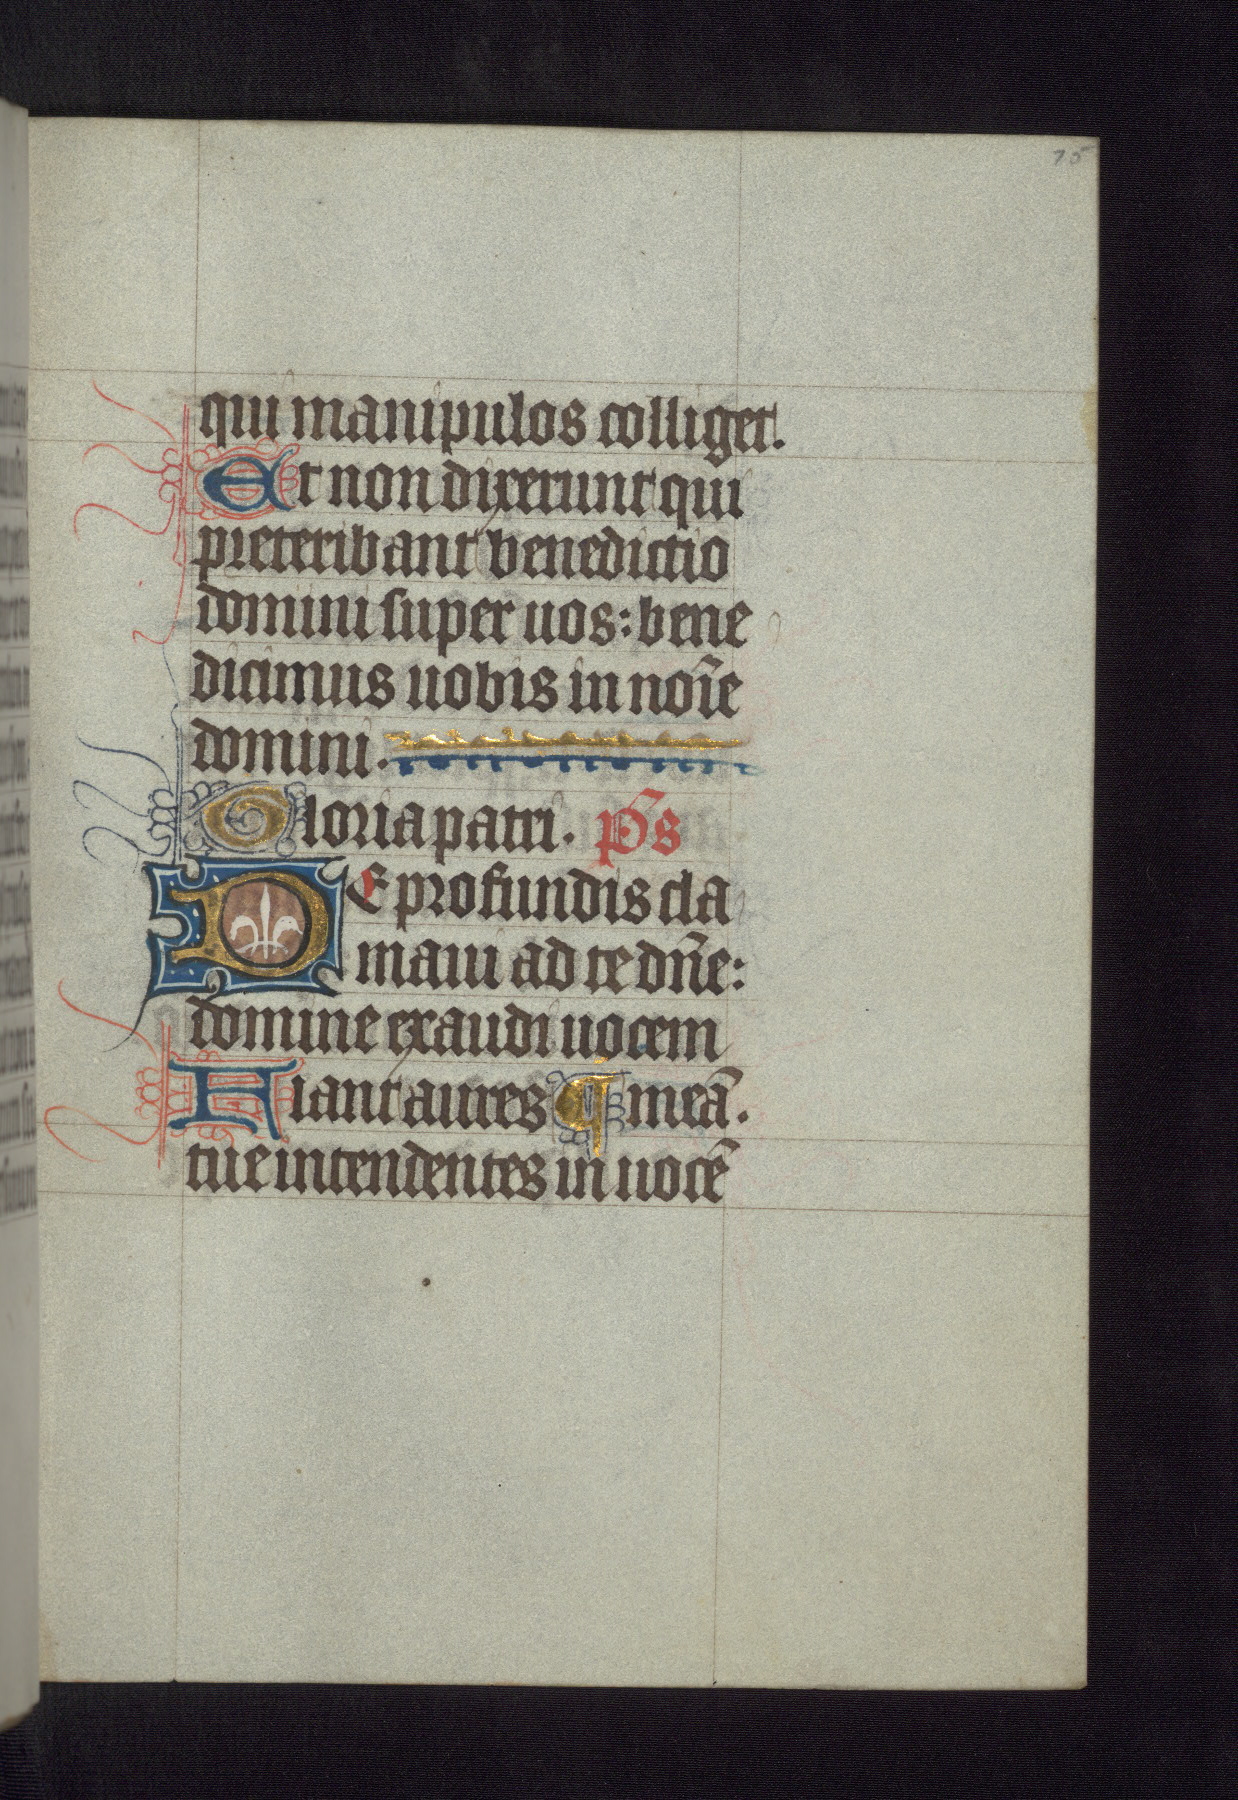 75
qui manipulos colliget.
Et non dixerunt qui
preteribant benedictio
domini super uos: bene
dicimus uobis in noīe
domini.
Gloria patri. p̄s
De profundis cla
maui ad te dn̄e:
domine exaudi uocem
Fiant aures ¶ meā.
tue intendentes in uocē